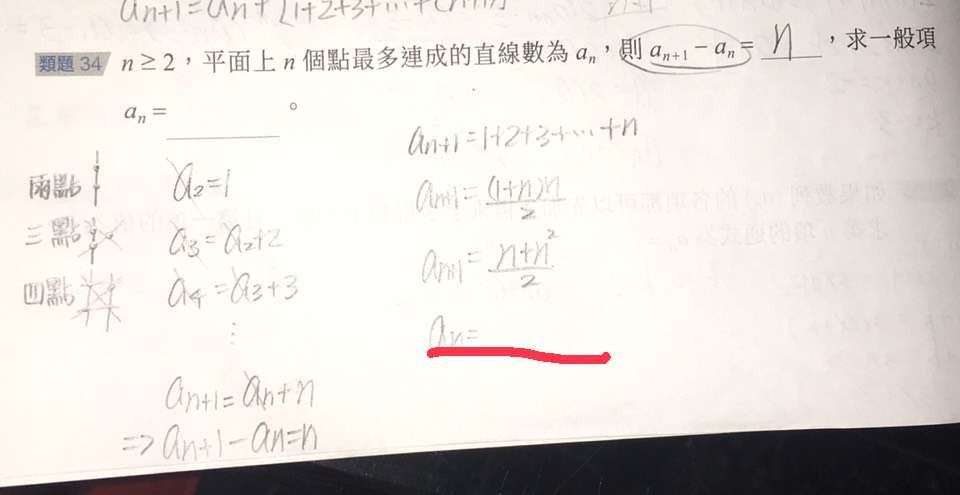 aₙ₊₁=aₙ+[1+2+3+⋯+(n+1)]
類題 34 n ≥ 2，平面上 n 個點最多連成的直線數為 aₙ，則 aₙ₊₁ − aₙ = n ，求一般項
aₙ = ________ 。
兩點 a₂=1
三點 a₃=a₂+2
四點 a₄=a₃+3
⋮
aₙ₊₁=aₙ+n
⇒aₙ₊₁−aₙ=n
aₙ₊₁=1+2+3+⋯+n
aₙ₊₁=(1+n)n/2
aₙ₊₁=n+n²/2
aₙ=